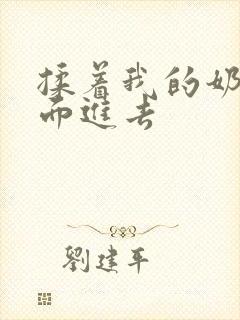 揉着我的奶
而进去
劉建平